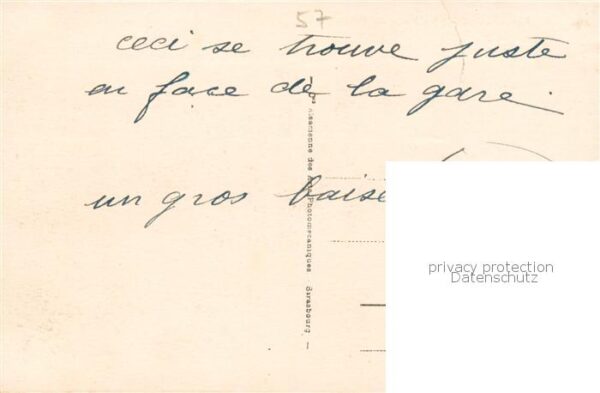 57
ceci se trouve juste
en face de la gare.
un gros baise
Cie Alsacienne des Arts Photomecaniques Strasbourg. —
privacy protection
Datenschutz